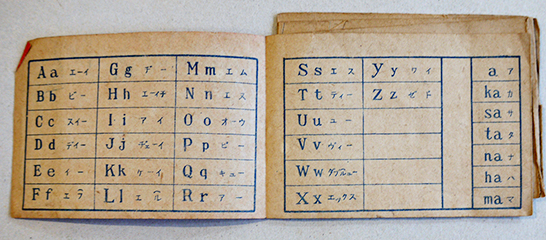 Aa エーイ Gg ヂー Mm エム
Bb ビー Hh エーイチ Nn エヌ
Cc スイー Ii アイ Oo オーウ
Dd デイー Jj ヂェーイ Pp ピー
Ee イー Kk ケーイ Qq キュー
Ff エフ Ll エル Rr アー
Ss エス Yy ワイ a ア
Tt ティー Zz ゼド ka カ
Uu ユー sa サ
Vv ヴィー ta タ
Ww ダブルユー na ナ
Xx エックス ha ハ
ma マ